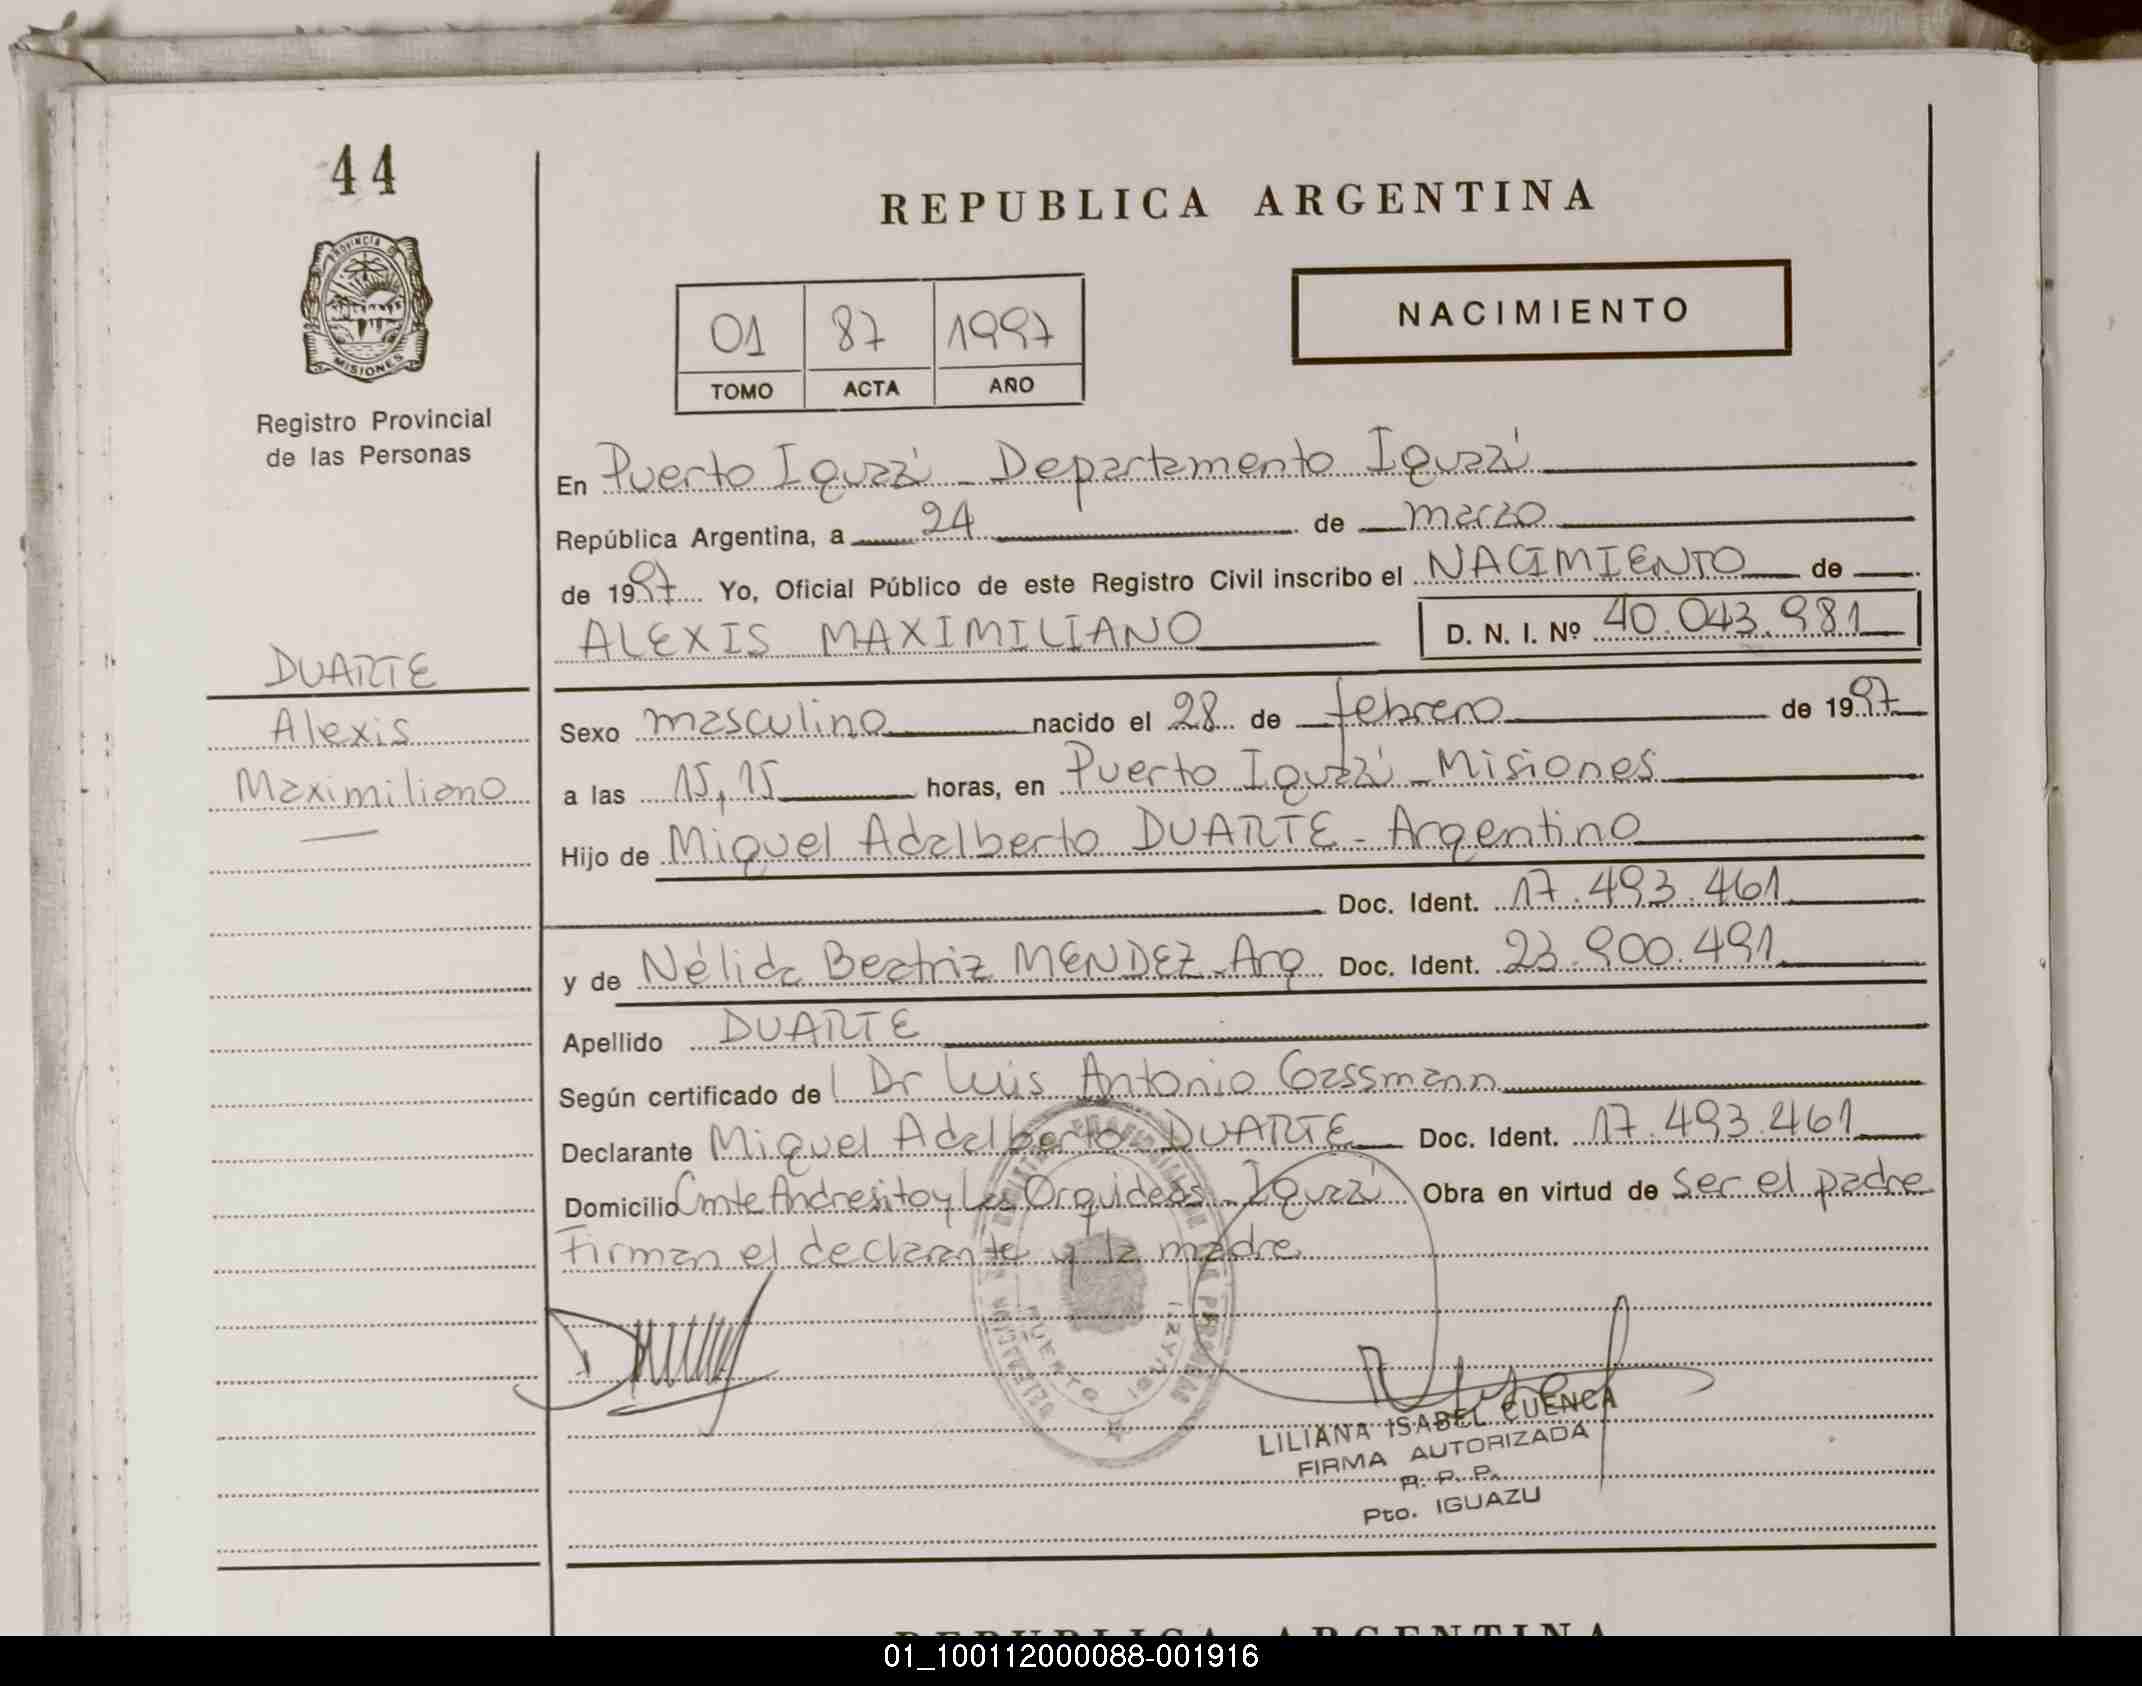 44
PROVINCIA DE
MISIONES
Registro Provincial
de las Personas
REPUBLICA ARGENTINA
01 87 1997
TOMO ACTA AÑO
NACIMIENTO
En Puerto Iguazú - Departamento Iguazú
República Argentina, a 24 de marzo
de 1997 Yo, Oficial Público de este Registro Civil inscribo el NACIMIENTO de
ALEXIS MAXIMILIANO D. N. I. Nº 40.043.981
DUARTE
Alexis
Maximiliano
Sexo masculino nacido el 28 de febrero de 1997
a las 15,15 horas, en Puerto Iguazú - Misiones
Hijo de Miguel Adalberto DUARTE - Argentino
Doc. Ident. 17.493.461
y de Nélida Beatriz MENDEZ - Arg Doc. Ident. 23.900.491
Apellido DUARTE
Según certificado de Dr Luis Antonio Gassmann
Declarante Miguel Adalberto DUARTE Doc. Ident. 17.493.461
Domicilio Cmte Andresito y Las Orquideas - Iguazú Obra en virtud de ser el padre
Firman el declarante y la madre
PUERTO IGUAZU
LILIANA ISABEL CUENCA
FIRMA AUTORIZADA
R. P. P.
Pto. IGUAZU
REPUBLICA ARGENTINA
01_100112000088-001916